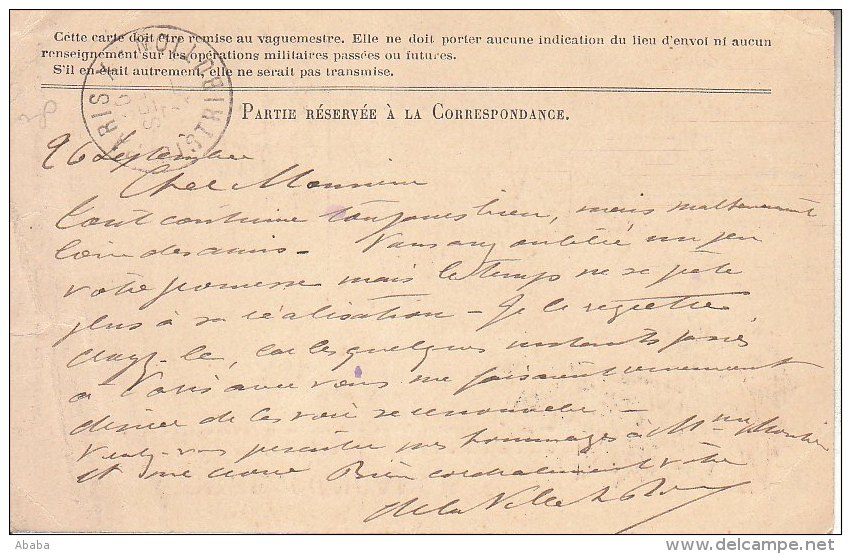 Cette carte doit être remise au vaguemestre. Elle ne doit porter aucune indication du lieu d'envoi ni aucun
renseignement sur les opérations militaires passées ou futures.
S'il en était autrement, elle ne serait pas transmise.
PARTIE RÉSERVÉE À LA CORRESPONDANCE.
PARIS DISTRIBUTION
26 Septembre
Cher Monsieur
tout continue toujours bien, mais
loin des amis - Vous avez oublié un peu
votre promesse mais le temps ne se prête
plus à sa réalisation - Je le regrette
croyez-le, car les quelques instants passés
à Paris avec vous me faisaient vivement
désirer de les voir se renouveler -
Veuillez-vous présenter mes hommages à Mme
et me croire Bien cordialement vôtre
de la
Ababa
www.delcampe.net